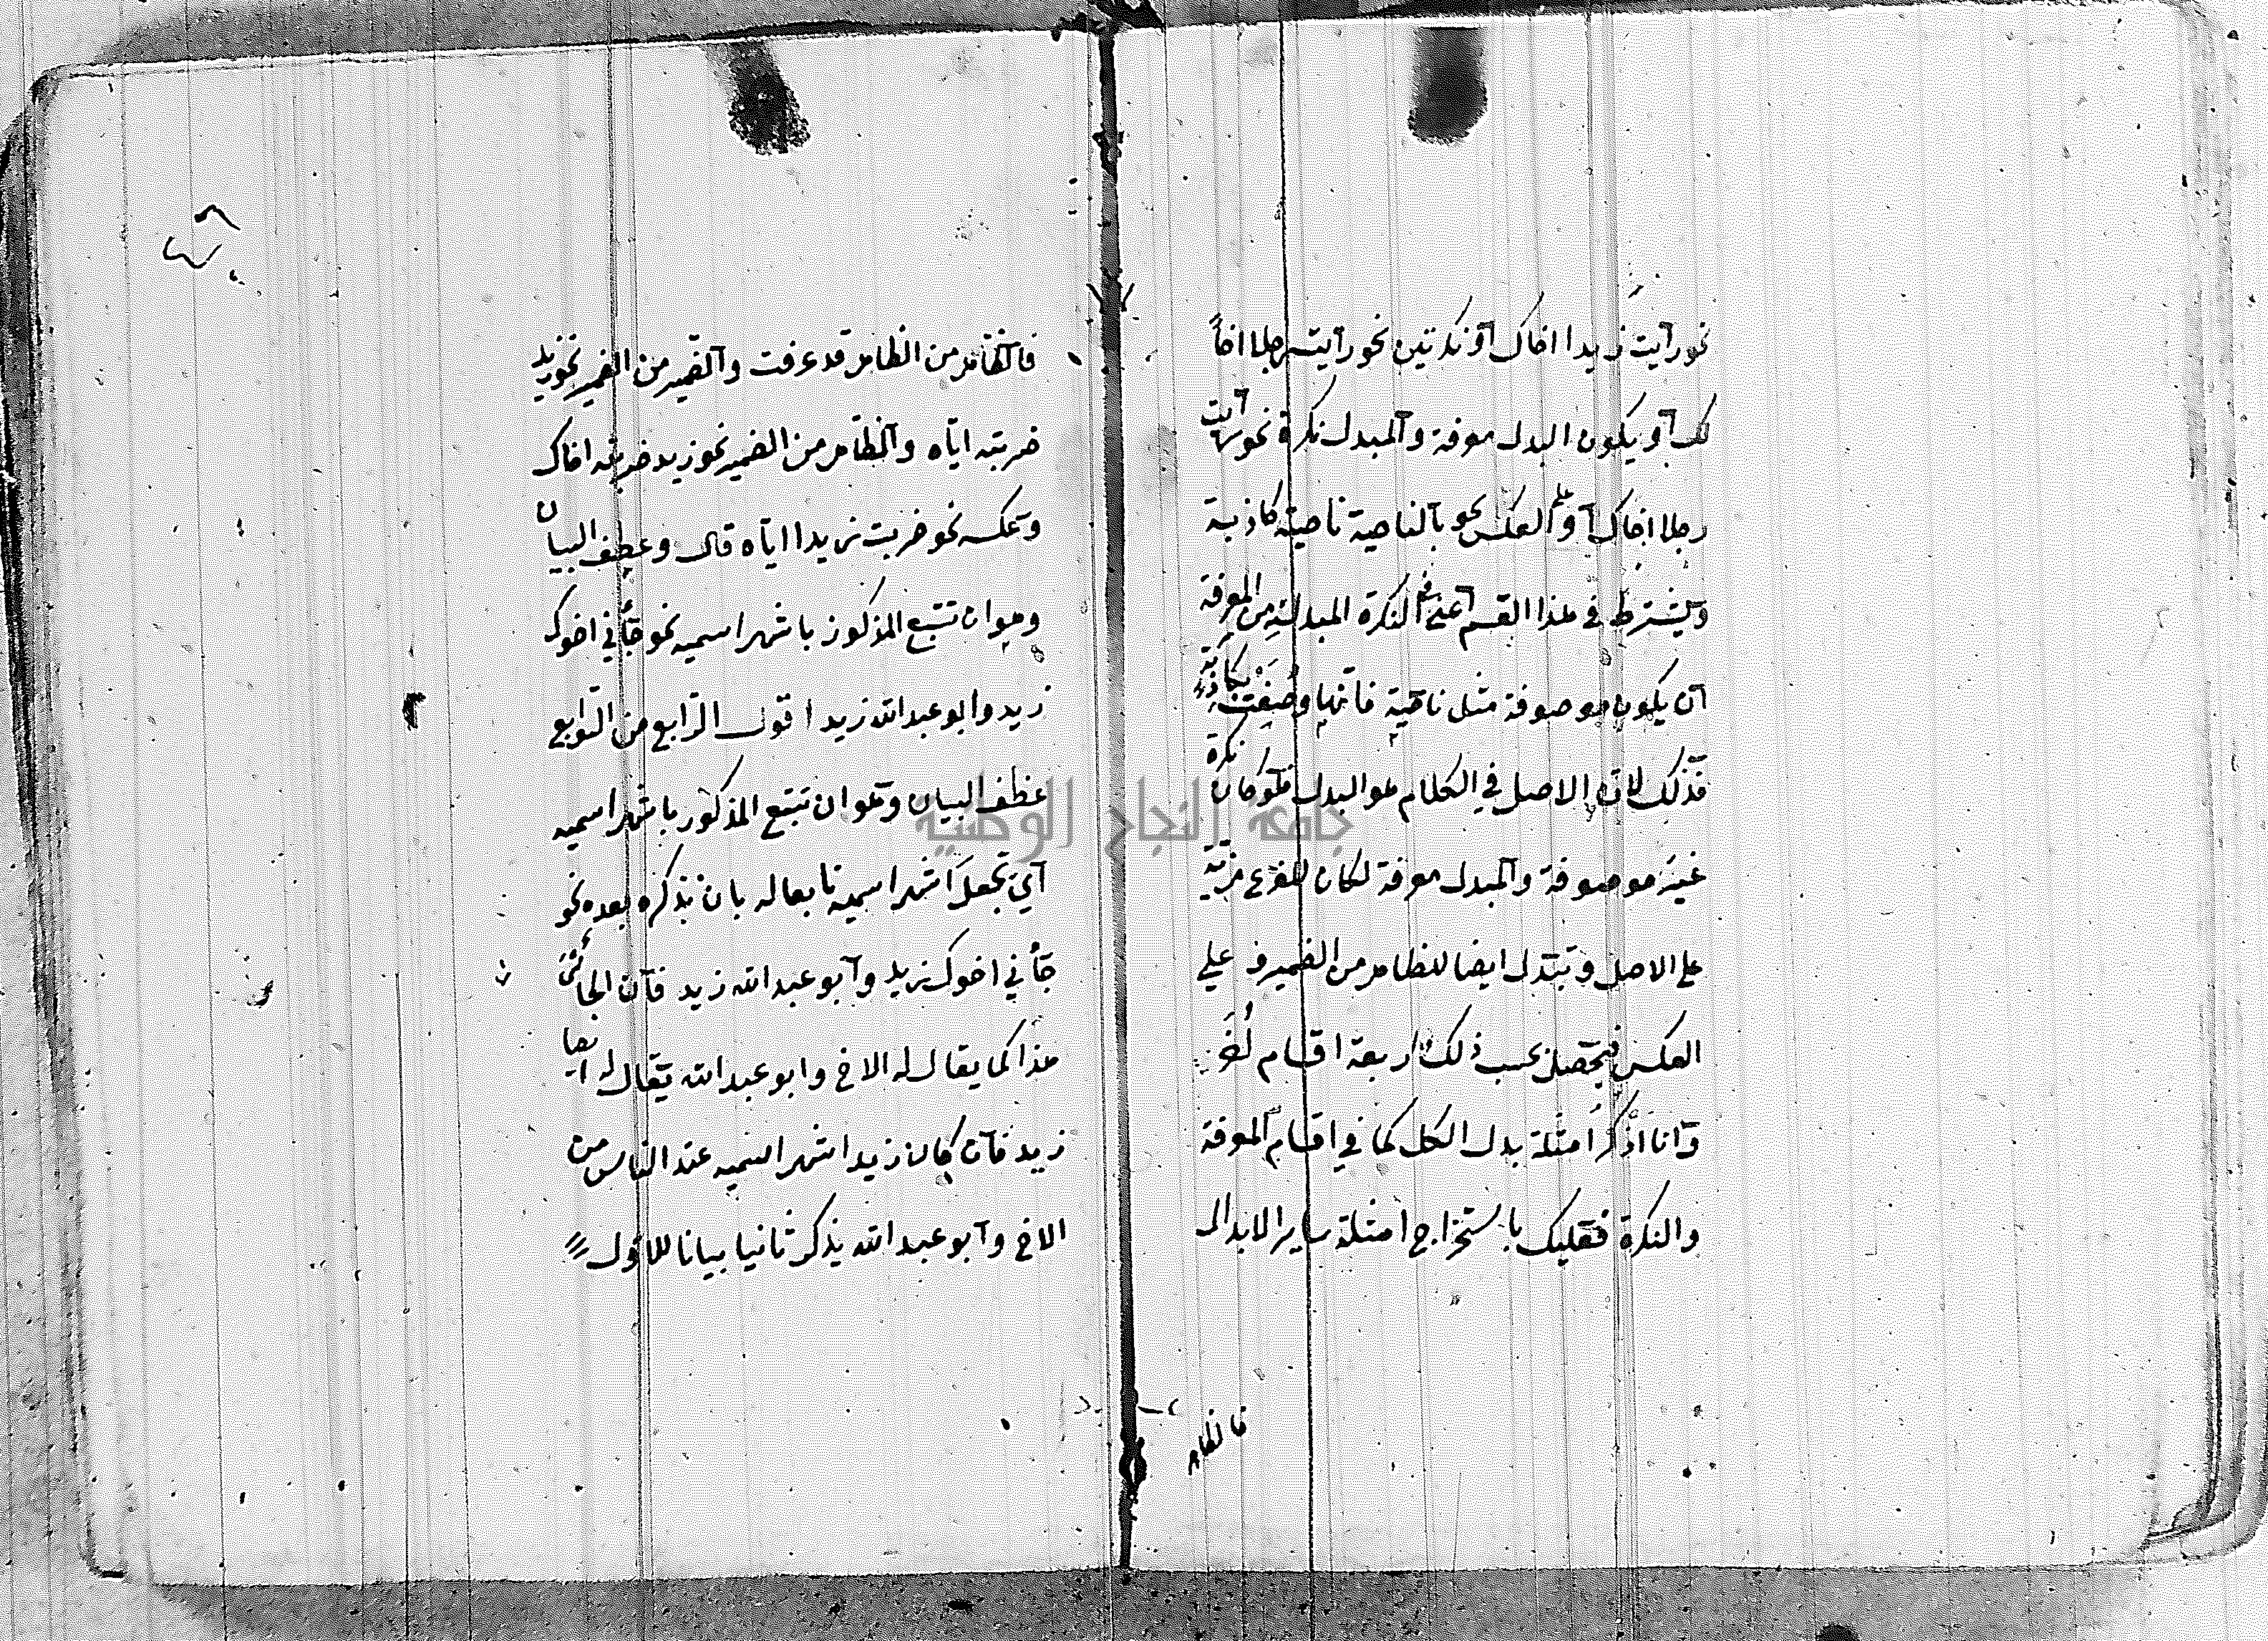 نحو رأيت زيدا اخاك او نكرتين نحو رأيت رجلا اخاً
لك أو يكون البدل معرفة والمبدل نكرة نحو رايت
رجلا اخاك أو علي العكس نحو بالناصية ناصية كاذبة
ويشترط في هذا القسم اعني في النكرة المبدلة من المعرفة
أن يكون موصوفة مثل ناصية فانها وُصِفَتْ بكاذبة
فذلك لان الاصل في الكلام هو البدل فلو كان نكرة
غير موصوفة والمبدل معرفة لكان للفرع مزية
على الاصل وتبدل ايضا للظاهر من الضمير و علي
العكس فيحصل بحسب ذلك اربعة اقسام أُخَر
وانا اذكر امثلة بدل الكل كما في اقسام المعرفة
والنكرة فعليك باستخراج امثلة ساير الابدال
فالظاهر
فالظاهر من الظاهر قد عرفت والضمير من الضمير نحو زيد
ضربته اياه والظاهر من الضمير نحو زيد ضربته اخاك
وعكسه نحو ضربت زيدا اياه قال وعطف البيان
وهو ان تتبع المذكور باشهر اسميه نحو جأني اخوك
زيد وابو عبد الله زيد اقول الرابع من التوابع
عطف البيان وهو ان تتبع المذكور باشهر اسميه
اي تجعل اشهر اسميه تابعا له بان تذكره بعده نحو
جأني اخوك زيد وأبو عبد الله زيد فان الجائي
هذا كما يقال له الاخ وابو عبد الله يقال له ايضا
زيد فان كان زيد اشهر اسميه عند الناس من
الاخ وأبو عبد الله يذكر ثانيا بيانا للاول
جامعة النجاح الوطنية